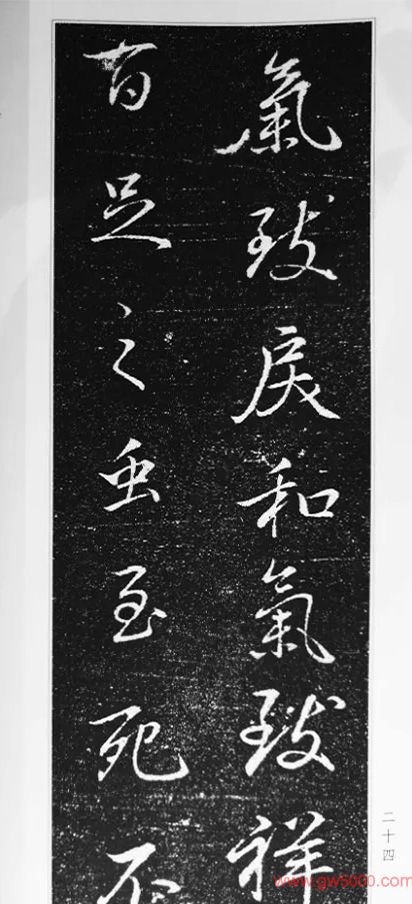 氣致戾和氣致祥
百足之虫至死不
二十四
www.gw5000.com